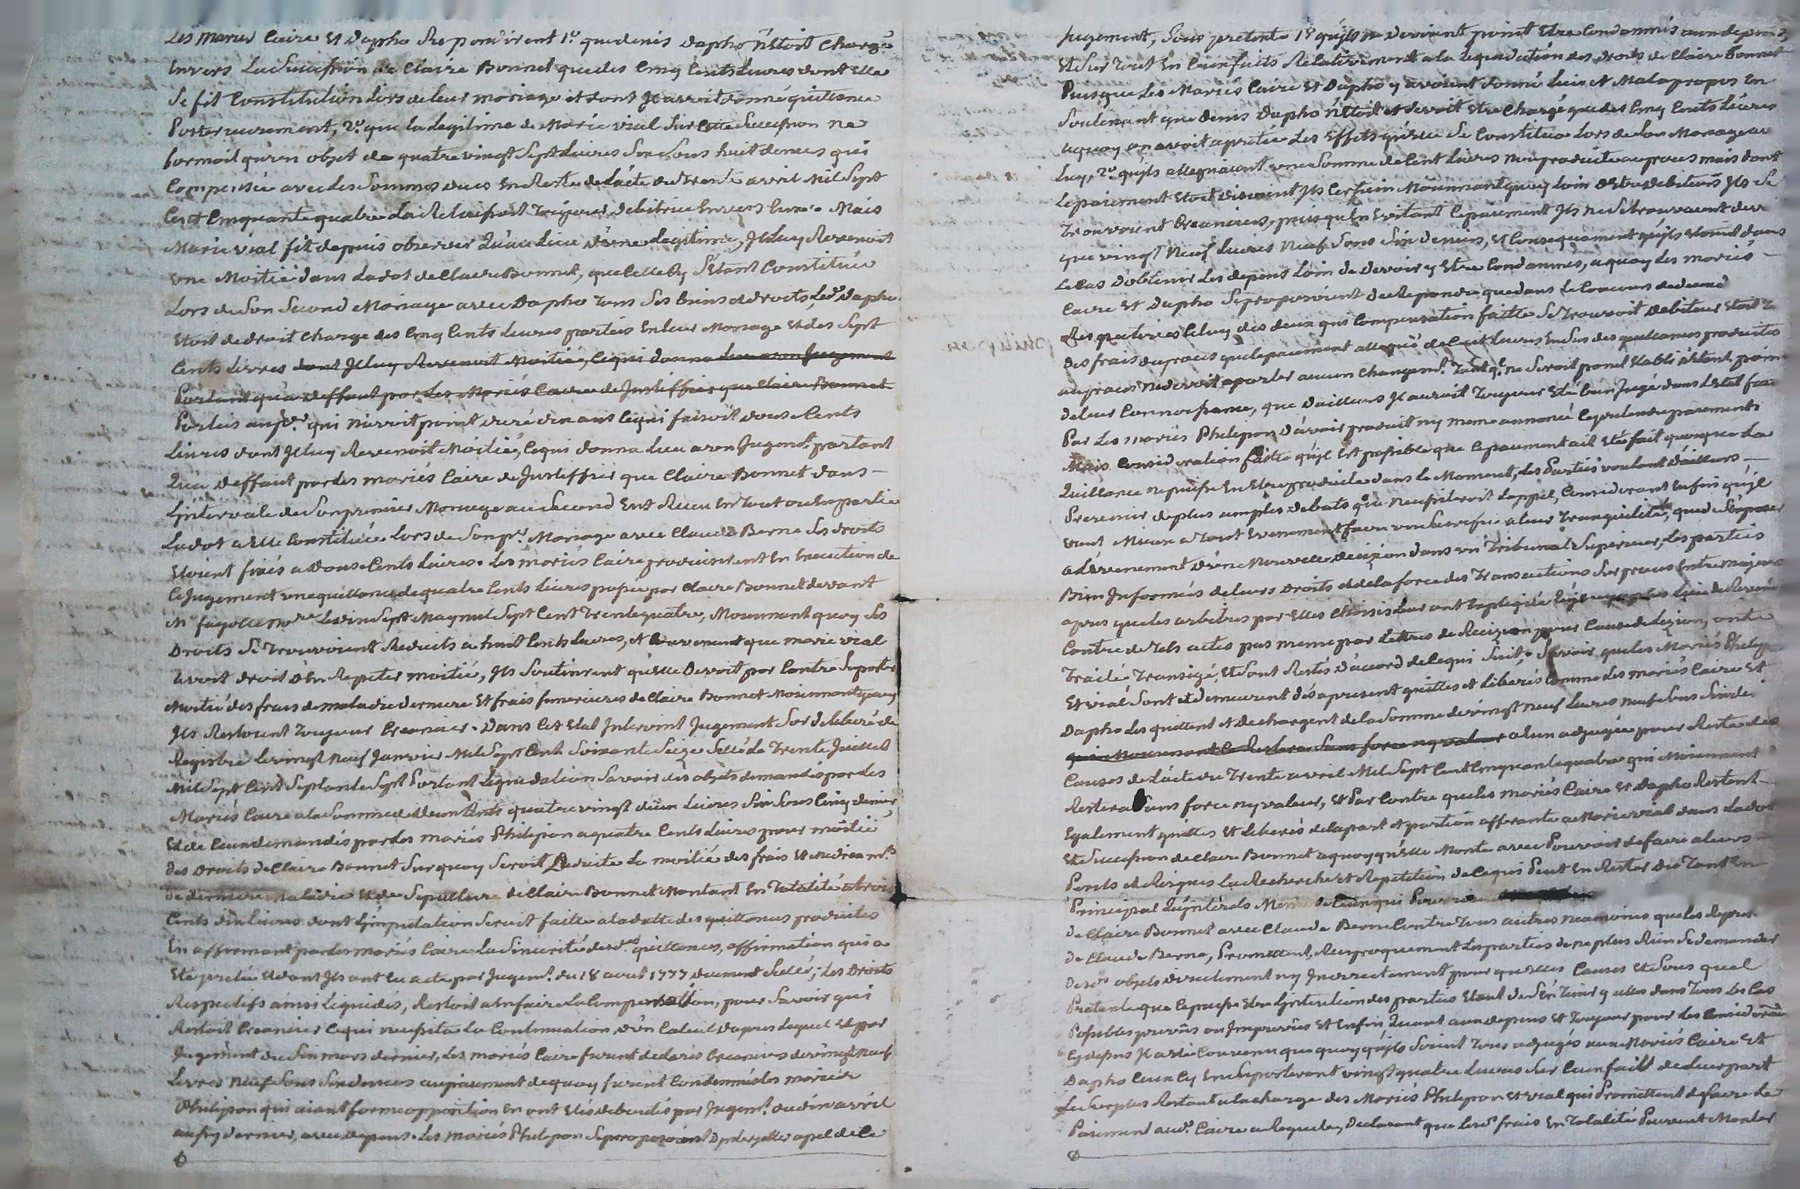 Les Mariés Caire Et Dapho Repondirent 1º. que denis Dapho N'Etoit Chargé
Envers La Succession de Claire Bonnet que des Cinq Cents Livres dont Elle
Se fit Constitution Lors de leur mariage et dont Il avoit donné quittance
Posterieurement, 2º. que la Legitime de Marie vial Sur Cette Succession ne
formoit qu'un objet de quatre vingt Sept Livres Six Sous huit deniers qui
Compensée avec les Sommes dues En Reste de l'acte du Trente avril Mil Sept
Cent Cinquante quatre La Relaissoit Toujours debitrice Envers Eux. Mais
Marie vial fit depuis observer Qu'au Lieu d'une Legitime, Il Luy Revenoit
une Moitié dans La dot de Claire Bonnet, que Celle Cy S'étant Constituée
Lors de Son Second Mariage avec Dapho Tous Ses biens et droits, Led. Dapho
Etoit de droit Chargé des Cinq Cents Livres portées En leur Mariage Et des Sept
Cents Livres dont Il Luy Revenoit Moitié, Ce qui donna Lieu a un Jugement
Portant qu'a deffaut par Les Mariés Caire de Justiffier que Claire Bonnet
Portées au pr. qui n'avoit point duré dix ans Ce qui faisoit douze Cents
Livres dont Il Luy Revenoit Moitié, Ce qui donna Lieu a un Jugemt. portant
Qu'a deffaut par les mariés Caire de Justiffier que Claire Bonnet dans
L'intervale de Son premier Mariage au Second Eut Reçu En Tout ou En partie
La dot a Elle Constituée Lors de Son pr. Mariage avec Claude Berne Ses droits
Etoient fixés a douze Cents Livres. Les mariés Caire produisirent En Execution de
Ce Jugement une quittance de quatre Cents Livres passée par Claire Bonnet devant
Me. fayolle Nore. Le vingt Sept May mil Sept Cent Trente quatre, Moyennant quoy Ses
Droits Se Trouvoient Reduits a huit Cents Livres, Et Convenant que marie vial
avoit droit d'En Repeter moitié, Ils Soutinrent qu'Elle Devoit par Contre Suporter
Moitié des frais de maladie derniere Et frais funeraires de Claire Bonnet Moyennant quoy
Ils Restoient Toujours Creanciers. Dans Cet Etat Intervint Jugement Sur deliberé de
Registre Le vingt Neuf Janvier Mil Sept Cent Soixante Seize Scellé Le Trente Juillet
Mil Sept Cent Septante Sept Portant Liquidation Savoir des objets demandés par les
Mariés Caire a la Somme de Cents quatre vingt deux Livres Six Sous Cinq deniers
Et de Ceux demandés par les mariés Philipon a quatre Cents Livres pour moitié
des Droits de Claire Bonnet Sur quoy Seroit Deduite La moitié des frais Et Medicamts.
de derniere Maladie Et de Sepulture de Claire Bonnet Montant En Totalité a trois
Cents dix Livres dont L'imputation Seroit faite a la datte des quittances produites
En affirmant par les mariés Caire La Sincerité desd. quittances, affirmation qui a
Eté pretée Et dont Ils ont Eu acte par Jugemt. du 18 avril 1777 duement Scellé; Les Droits
Respectifs ainsi Liquidés, Restoit a En faire La Compensation, pour Savoir qui
Restoit Creancier Ce qui necessita La Continuation d'un Calcul d'apres Lequel Et par
Jugement du Six mars dernier, Les mariés Caire furent declarés Creanciers de vingt Neuf
Livres Neuf Sous Six deniers au paiement de quoy furent Condamnés Les mariés
Philipon qui aiant formé opposition En ont Etés deboutés par Jugemt. du dix avril
aussy dernier, avec depens. Les mariés Philipon Se proposoient D'Interjetter apel de Ce
Jugement, Sous pretexte 1º. qu'ils ne devoient point Etre Condamnés aux depens
Et Sur Tout En Ceux faits Relativement a la Liquidation des droits de Claire Bonnet
Puisque Les Mariés Caire Et Dapho y avoient donné Lieu Et Mal a propos En
Soutenant que denis Dapho N'Etoit et devoit Etre Chargé que des Cinq Cents Livres
a quoy on avoit aprecié Les Effets qu'Elle Se Constitua Lors de Son Mariage avec
Luy, 2º. qu'ils alleguaient une Somme de Cent Livres non produite au procès mais dont
Le paiement Etoit disoient Ils Certain Moiennant quoy Loin d'Etre debiteurs Ils Se
Trouvoient Creanciers, puisqu'En Evitant Ce paiement Ils ne Se trouvoient devoir
que vingt Neuf Livres Neuf Sous Six deniers, Et Consequament qu'ils Etoient dans
Le Cas d'obtenir Les depens Loin de devoir y Etre Condamnés, a quoy Les mariés
Caire Et Dapho Se proposoient de Repondre que dans Le Concours de demandes
Respectives Celuy des deux qui Compensation faitte Se Trouvoit debiteur Etoit
des frais du procès que le paiement allegué de Cent Livres En Sus des quittances produites
au procès Ne devoit aporter aucun Changemt. Tant qu'il ne Seroit point Etabli N'étant point
de leur Connoissance, que d'ailleurs Il auroit Toujours Eté bien Jugé dans L'Etat faute
Par Les Mariés Philipon d'avoir produit ny meme annoncé Ce pretendu paiement.
Mais Consideration faitte qu'il Est possible que Ce paiement ait Eté fait quoique La
Quittance ne puisse En Etre produite dans Le Moment, Les Parties voulant d'ailleurs
Prevenir de plus amples debats que Necessiteroit L'appel, Considerant Enfin qu'il
vaut Mieux a Tout Evenement faire un Sacrifice a leur Tranquilité, que de S'exposer
a L'Evenement d'une Nouvelle decision dans un Tribunal Superieur, Les parties
Bien Informées de leurs Droits et de la force des Transactions Sur procès Entre majeurs
apres que Les arbitres par Elles Choisis Leur ont Expliqué
Contre de Tels actes pas meme par Lettres de Récizion pour Cause de Lezion, ont
Traité, Transigé, Et Sont Restés d'accord de Ce qui Suit, Savoir, que les Mariés Philipon
Et vial Sont et demeurent dès a present quittes et Liberés Comme Les mariés Caire Et
Dapho Les quittent et dechargent de la Somme de vingt neuf Livres neuf Sous Six den.
qui Moiennant Ce Restera Sans force ny valeur a Eux adjugée pour Reste des
Causes de L'acte du Trente avril Mil Sept Cent Cinquante quatre qui Moiennant
Restera Sans force ny valeur, Et Par Contre que les mariés Caire Et Dapho Restent
Egalement quittes Et Liberés de la part et portion afferante a Marie vial dans La dot
Et Succession de Claire Bonnet a quoy qu'Elle Monte avec Pouvoir de faire a leurs
Perils et Risques La Recherche Et Repetition de Ce qui Peut En Rester dû Tant En
Principal qu'intérêts Meme de Ceux qui
de Claire Bonnet avec Claude Berne Contre Tous autres neanmoins que les Repres.
de Claude Berne, Promettant Reciproquement Les parties de ne plus Rien Se demander
desd. objets directement ny Indirectement pour quelles Causes Et Sous quel
Pretexte que Ce puisse Etre L'intention des parties Etant de S'en Tenir quittes dans Tous Les Cas
Possibles prevûs ou Imprevûs Et Enfin Quant aux depens Et Toujours pour Les Considérations
Cy dessus Il a Eté Convenu que quoy qu'ils Soient Tous adjugés aux Mariés Caire Et
Dapho Ceux Cy En Suporteront vingt quatre Livres Sur Ceux faits de leur part
Le Surplus Restant a la charge des Mariés Philipon Et vial qui Promettent de faire Le
Paiement auxd. Caire a Requete, Declarant que Lesd. frais En Totalité Peuvent Monter